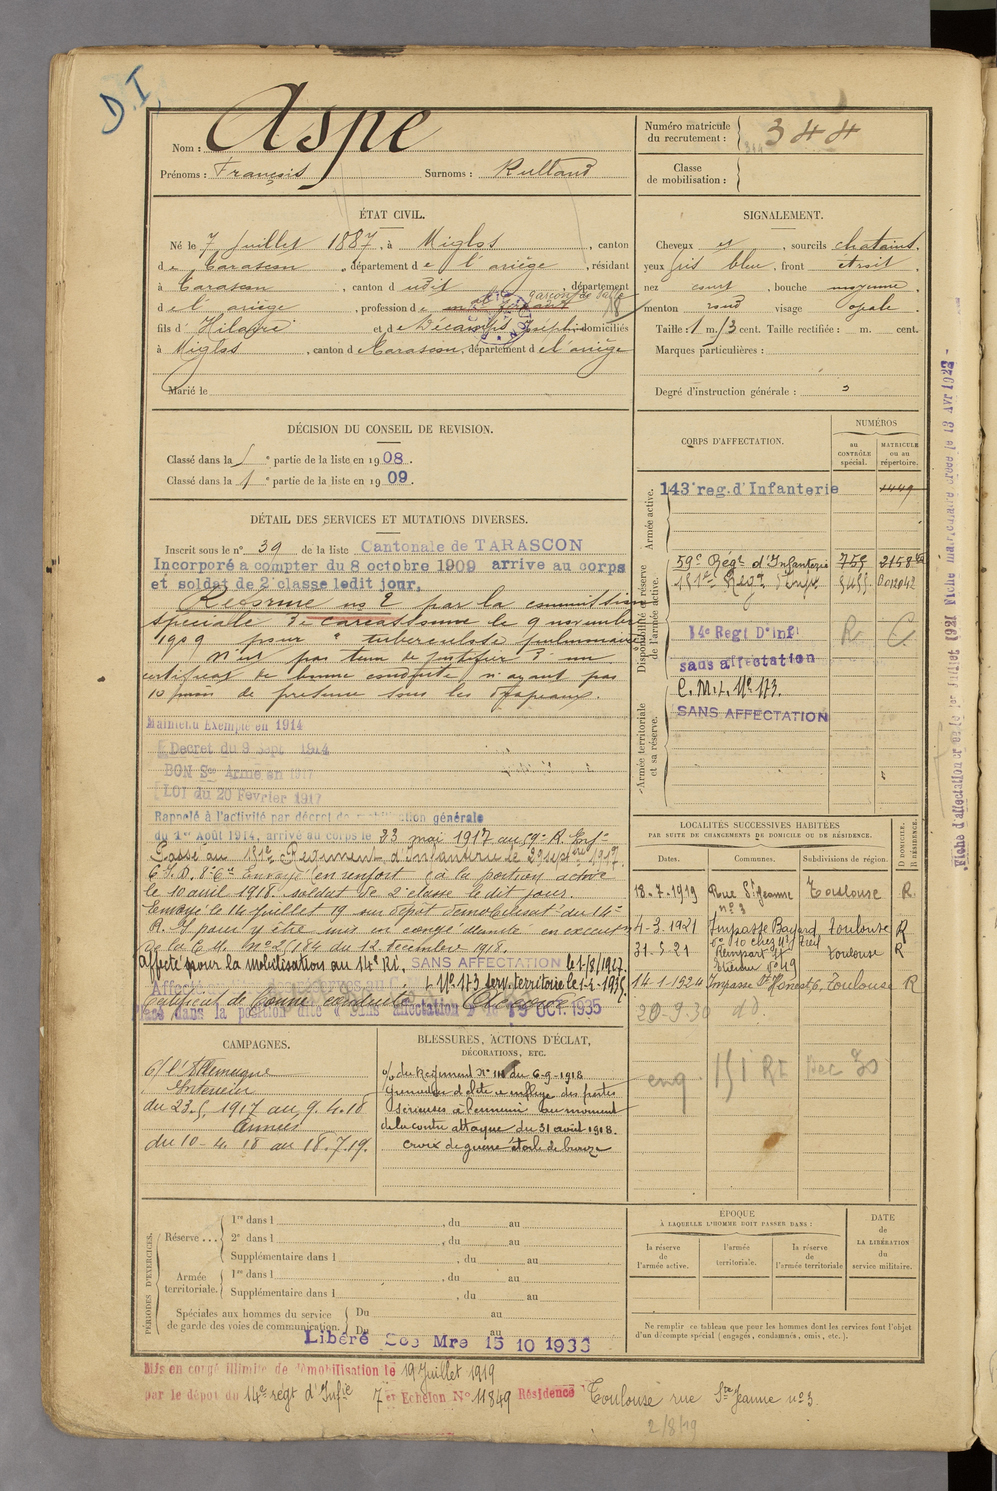 D.I.
Nom : Aspe
Prénoms : François Surnoms : Rulland
Numéro matricule du recrutement : 344
Classe de mobilisation :
ÉTAT CIVIL.
Né le 7 Juillet 1887, à Miglos, canton
de Tarascon, département de l'ariège, résidant
à Tarascon, canton d udit, département
de l'ariège, profession de garçon de salle
fils d' Hilaire et de Décamps Joséphine domiciliés
à Miglos, canton d Tarascon, département de l'ariège
Marié le
SIGNALEMENT.
Cheveux et, sourcils chatains,
yeux gris bleu, front étroit,
nez court, bouche moyenne,
menton rond visage opale.
Taille : 1 m. 73 cent. Taille rectifiée : m. cent.
Marques particulières :
Degré d'instruction générale : 3
DÉCISION DU CONSEIL DE REVISION.
Classé dans la 5e partie de la liste en 1908.
Classé dans la 1e partie de la liste en 1909.
DÉTAIL DES SERVICES ET MUTATIONS DIVERSES.
Inscrit sous le n° 39 de la liste Cantonale de TARASCON
Incorporé à compter du 8 octobre 1909 arrivé au corps
et soldat de 2e classe ledit jour.
Réformé no 2 par la commission
spéciale de Carcassonne le 9 novembre
1909 pour " tuberculose pulmonaire
N'est pas tenu de justifier d'un
certificat de bonne conduite, n'ayant pas
de présence sous les drapeaux.
Maintenu Exempté en 1914
Décret du 9 Sept 1914
BON Sce Armé en 1917
LOI du 20 Février 1917
Rappelé à l'activité par décret de mobilisation générale
du 1er Août 1914, arrivé au corps le 23 mai 1917 au 59e R. Infie
Passé au 151e Régiment d'infanterie le 29 septbre 1917
C.I.D. Envoyé en renfort à la portion active
le 10 avril 1918. soldat de 2e classe le dit jour.
Envoyé le 14 Juillet 19 au dépôt démobilisat. du 14e
R. I pour y être mis en congé illimité en exécution
de la C.M. no 2/184 du 12 decembre 1918.
Affecté pour la mobilisation au 14e R.I. SANS AFFECTATION le 1-8/1927.
Certificat de Bonne conduite
Placé dans la position dite « Sans affectation » le 15 OCT. 1935
CORPS D'AFFECTATION.
NUMÉROS
au CONTRÔLE spécial.
MATRICULE ou au répertoire.
Armée active.
143e reg. d'Infanterie 1449
Disponibilité et réserve de l'armée active.
59e Regt d'Infanterie 755 2158
151e Regt Infie
14e Regt D'Inf: R. C.
sans affectation
C.M.I. No 173.
SANS AFFECTATION
Armée territoriale et sa réserve.
LOCALITÉS SUCCESSIVES HABITÉES
PAR SUITE DE CHANGEMENTS DE DOMICILE OU DE RÉSIDENCE.
Dates. Communes. Subdivisions de région. D DOMICILE. R RÉSIDENCE.
18-7-1919 Rue Ste Jeanne n° 3 Toulouse R.
4-3-1921 Impasse Bayard Toulouse R
31-5-21 Rempart St Etienne no 49 Toulouse R
14-1-1924 Impasse St Honest, 6, Toulouse R
20-9-30 do.
151 RI Dec 30
CAMPAGNES.
c/ l'Allemagne
Intérieur
du 23.5.1917 au 9.4.18
Armées
du 10-4.18 au 18.7.19.
BLESSURES, ACTIONS D'ÉCLAT,
DÉCORATIONS, ETC.
o/ du Régiment No 111 du 6-9-1918
Grenadier d'élite a infligé des pertes
sérieuses à l'ennemi au moment
de la contre attaque du 31 août 1918.
Croix de guerre étoile de bronze
PÉRIODES D'EXERCICES.
Réserve ... 1re dans l , du au
2e dans l , du au
Supplémentaire dans l , du au
Armée territoriale. 1re dans l , du au
Supplémentaire dans l , du au
Spéciales aux hommes du service de garde des voies de communication. Du au
Du au
Libéré Sce Mre 15 10 1936
ÉPOQUE
À LAQUELLE L'HOMME DOIT PASSER DANS :
la réserve de l'armée active.
l'armée territoriale.
la réserve de l'armée territoriale
DATE de LA LIBÉRATION du service militaire.
Ne remplir ce tableau que pour les hommes dont les services font l'objet
d'un décompte spécial (engagés, condamnés, omis, etc.).
Mis en congé illimité de démobilisation le 19 Juillet 1919
par le dépôt du 14e régt d'Infie 7e Echelon No 11849 Résidence Toulouse rue Ste Jeanne no 3
2/8/19